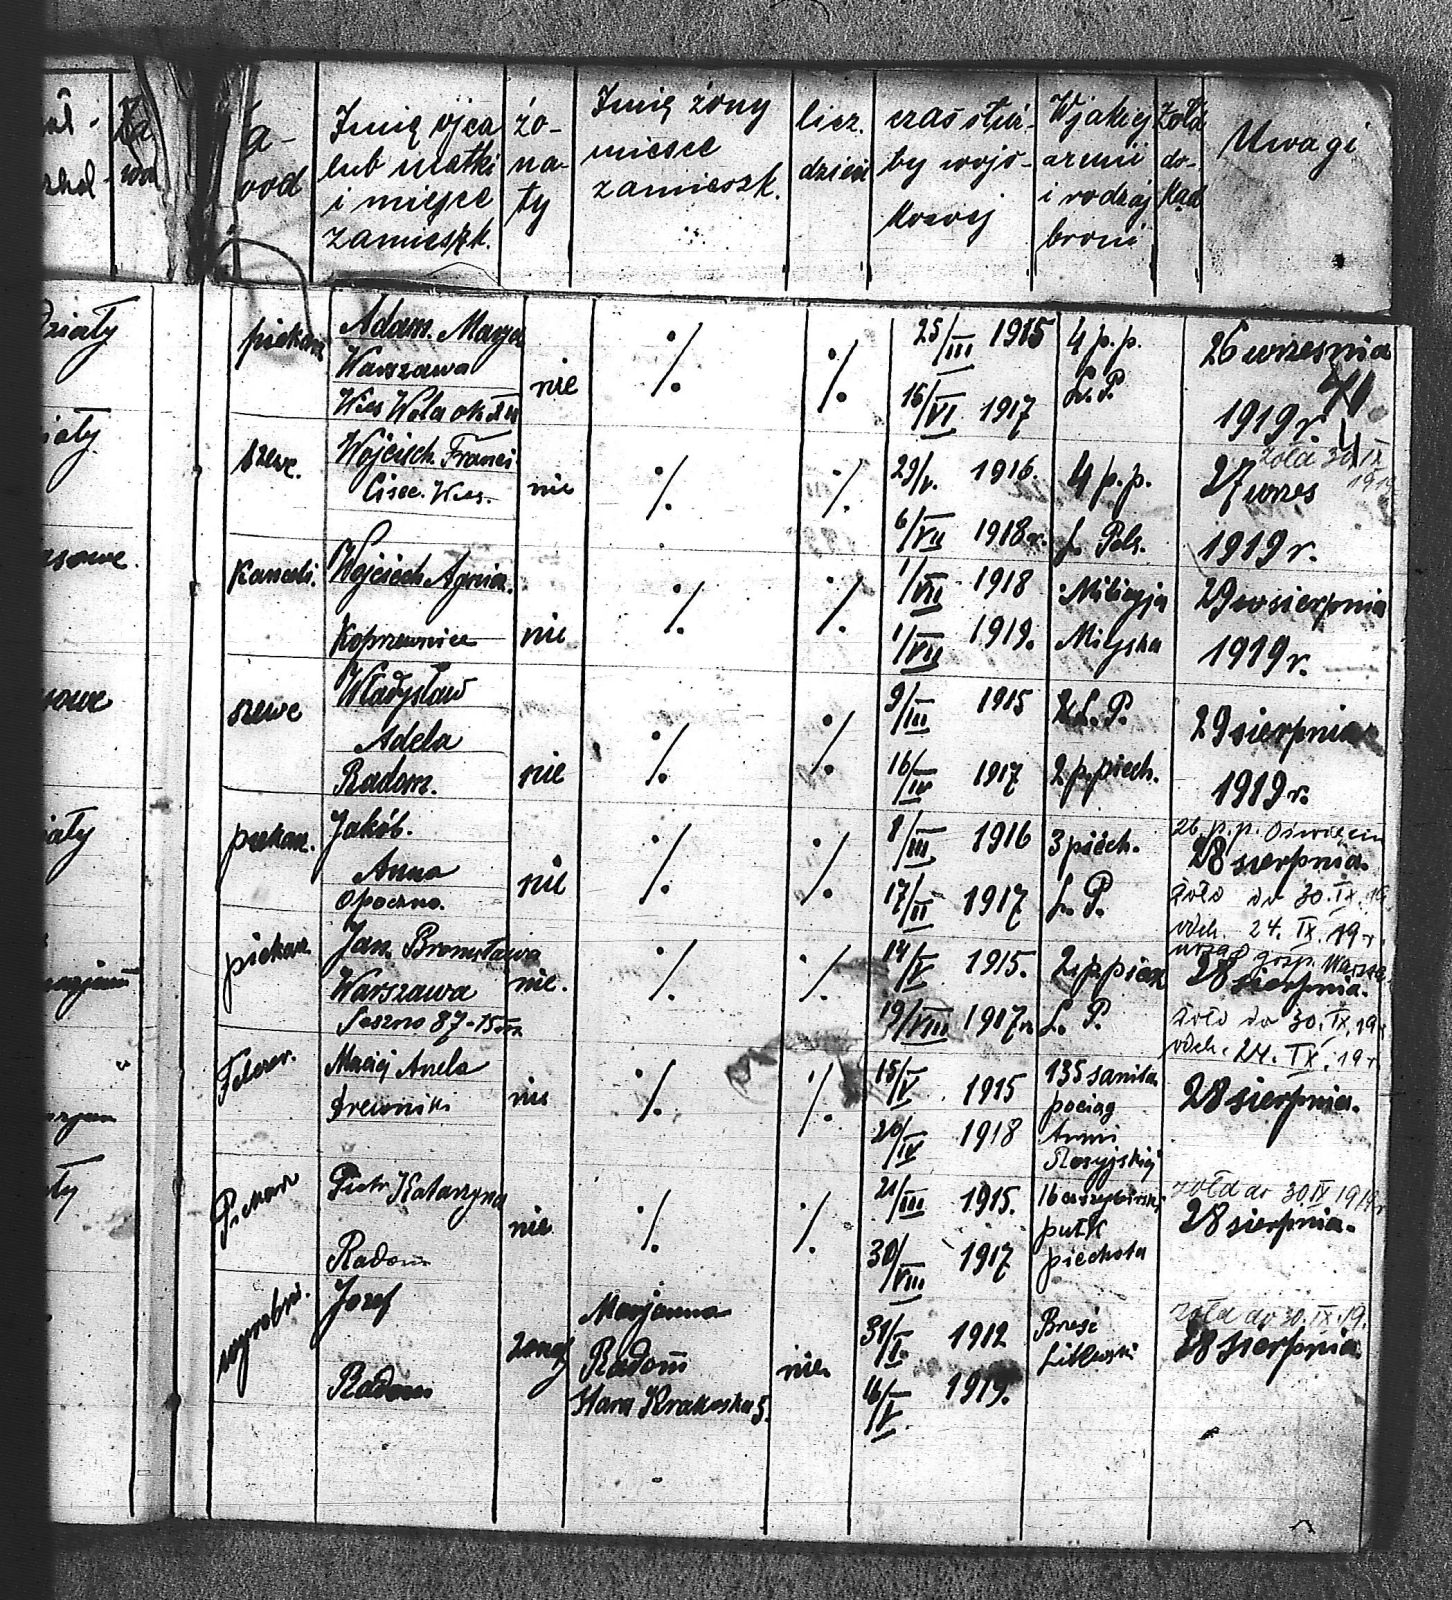 Za-
wod
Imię ojca
lub matki
i miejsce
zamieszk.
żo-
na-
ty
Imię żony
miesce
zamieszk.
licz.
dzieci
czas służ-
by wojs-
kowej
W jakiej
armii
i rodzaj
broni
Żołd
do-
kąd
Uwagi
działy
piekarz
Adam. Marja
Warszawa
Wieś Wola
nie
%
%
25/III 1915
16/VI 1917
4 p.p.
L. P.
26 wrzesnia
1919 r.
szewc.
Wojciech Franci
Wies.
nie
%
%
29/V. 1916.
6/VII 1918 r.
4 p.p.
L. Pols.
żołd 30 IX
27 wrzes
1919 r.
Kanceli.
Wojciech
Koprzewnice
nie
%
%
1/VII 1918
1/VII 1919.
Milicyja
Miejska
29 sierpnia
1919 r.
szewc
Władysław
Adela
Radom.
nie
%
%
9/III 1915
16/IV 1917
L. P.
2 p. piech.
29 sierpnia
1919 r.
piekarz.
Jakób.
Anna
Opoczno.
nie
%
%
8/III 1916
17/II 1917
3 piech.
L. P.
26 p.p. Oświęcim
28 sierpnia.
żołd do 30. IX. 19.
odch. 24. IX. 19 r.
piekarz
Jan. Bronisława
Warszawa
87-15
nie.
%
%
14/V 1915.
19/VIII 1917 r.
2 p. piech
L. P.
28 sierpnia.
żołd do 30. IX. 19
odch. 24. IX. 19 r.
Felczer.
Maciej Anela
Drewniki
nie
%
%
15/V 1915
20/IV 1918
135 sanita.
pociąg
Armii
Rosyjskiej
28 sierpnia.
Piekarz
Piotr Katarzyna
Radom
nie
%
%
21/III 1915.
30/VIII 1917
pułk
piechota
żołd do 30 IX 1919 r
28 sierpnia.
wyrobn.
Jozef
Radom
żonaty
Marjanna
Radom
Stara Krakoska 5.
nie
31/I. 1912
16/V. 1919.
Brześć
Litewski
żołd do 30. IX. 19.
28 sierpnia